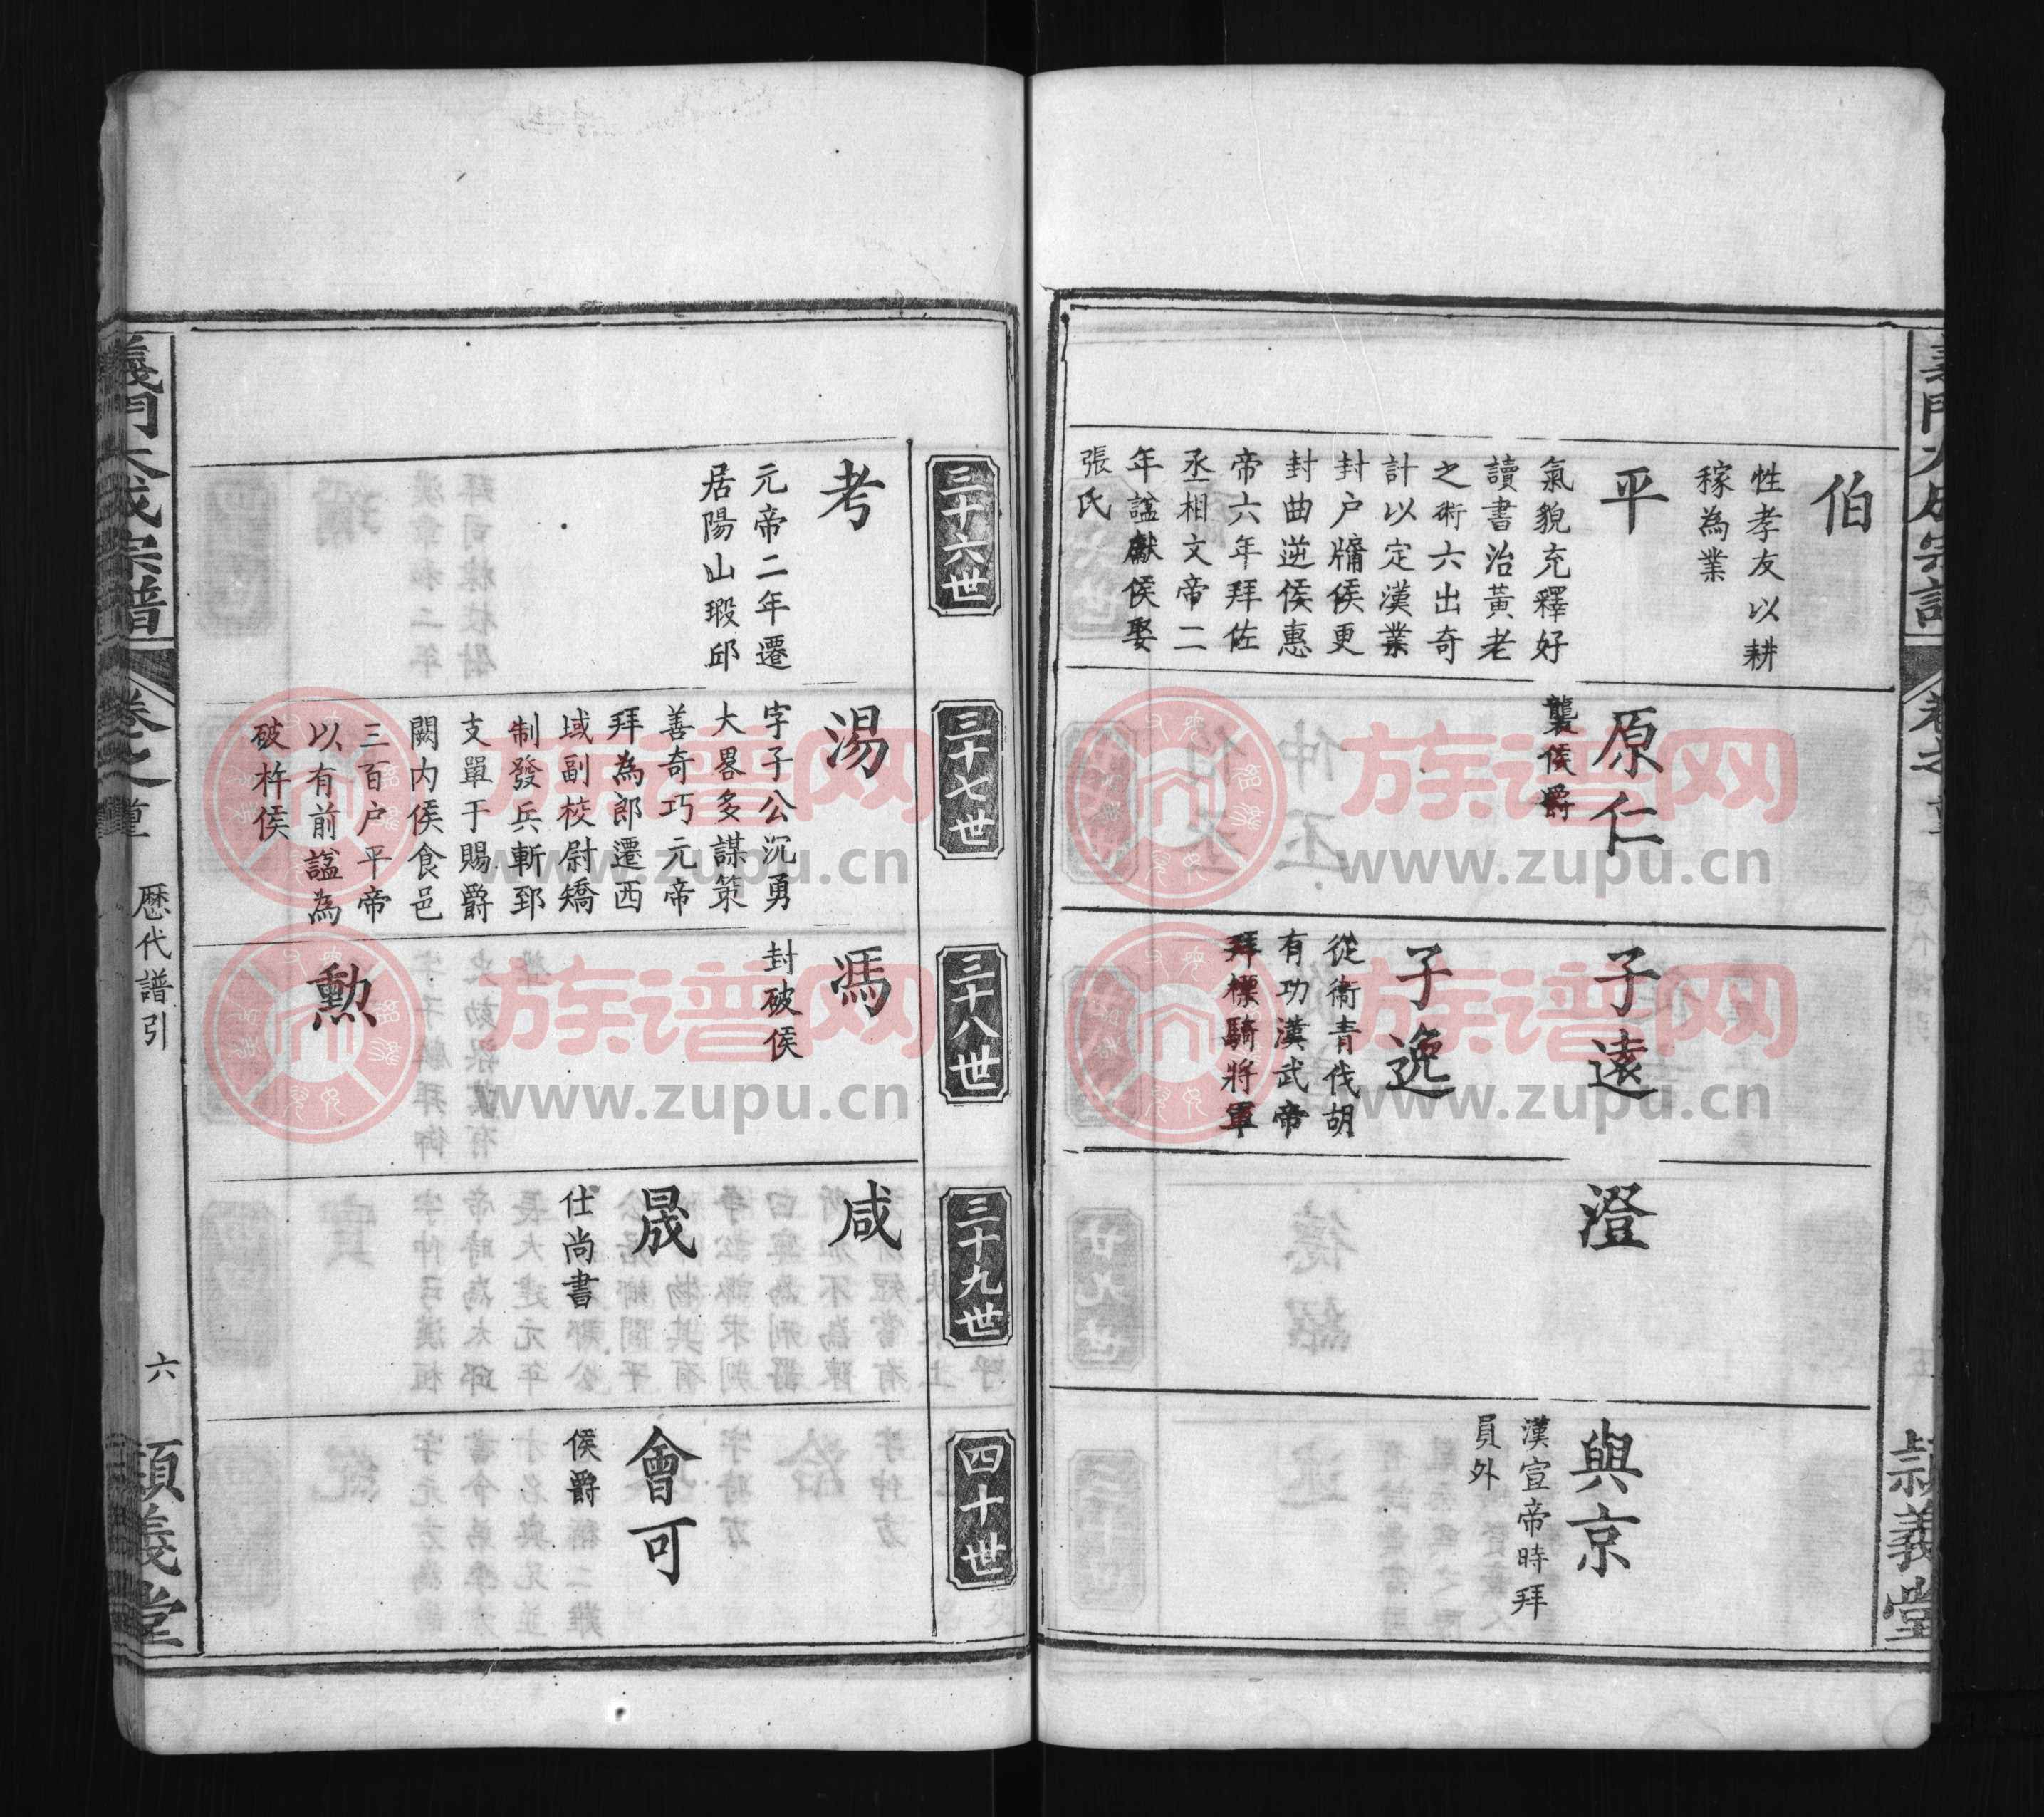 伯
性孝友以耕
稼為業
平
氣貌充釋好
讀書治黃老
之術六出奇
計以定漢業
封户牗侯更
封曲逆侯惠
帝六年拜佐
丞相文帝二
年諡獻侯娶
張氏
原仁
襲侯爵
子遠
子逸
從衞青伐胡
有功漢武帝
拜標騎將軍
澄
與京
漢宣帝時拜
員外
義堂
三十六世
考
元帝二年遷
居陽山瑕邱
三十七世
湯
字子公沉勇
大畧多謀策
善奇巧元帝
拜為郎遷西
域副校尉矯
制發兵斬郅
支單于賜爵
闕内侯食邑
三百户平帝
以有前諡為
破杵侯
三十八世
馮
封破侯
勲
三十九世
咸
晟
仕尚書
四十世
會可
侯爵
義門大成宗譜
卷之首
歷代譜引
六
頴義堂
族谱网
www.zupu.cn
族谱网
www.zupu.cn
族谱网
www.zupu.cn
族谱网
www.zupu.cn